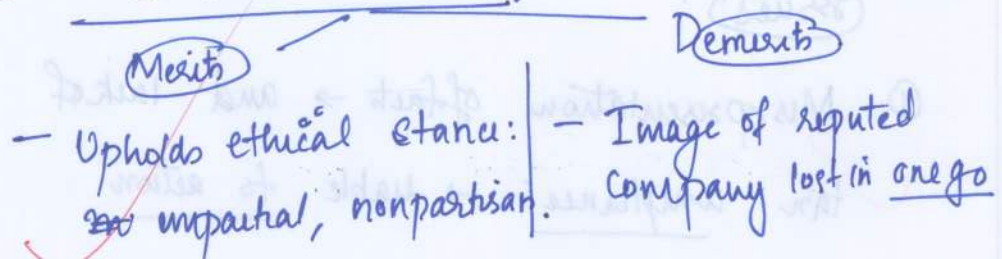 Merits
Demerits
- Upholds ethical stance:
impartial, nonpartisan.
- Image of reputed
company lost in one go